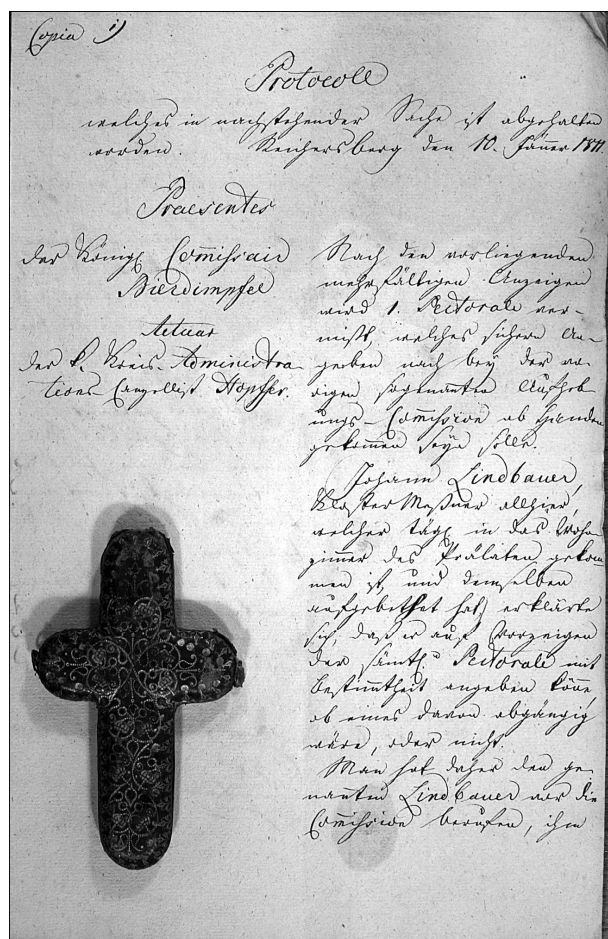 Copia 1)
Protocoll
welches in nachstehender Sache ist abgehalten
worden. Reichersberg den 10. Jänner 1811
Praesentes
der Königl. Commissair
Bierdimpfel
Actuar
der k. Kreis-Administra-
tions Canzellist Hopfner.
Nach den vorliegenden
mehrfältigen Anzeigen
wird 1. Pectorale ver-
mißt, welches sichern An-
geben nach bey der vo-
rigen sogenannten Aufheb-
ungs-Commission ab Handen
gekommen seyn solle.
Johann Lindbauer,
Kloster Meßner allhier,
welcher tägl. in das Wohn-
zimmer des Prälaten gekom
men ist, und demselben
aufgebethet hat, erklärte
sich, daß er auf Vorzeigen
der sämtl. Pectorale mit
Bestimmtheit angeben könne,
ob eines davon abgängig
wäre, oder nicht.
Man hat daher den ge-
nannten Lindbauer vor die
Commission berufen, ihm